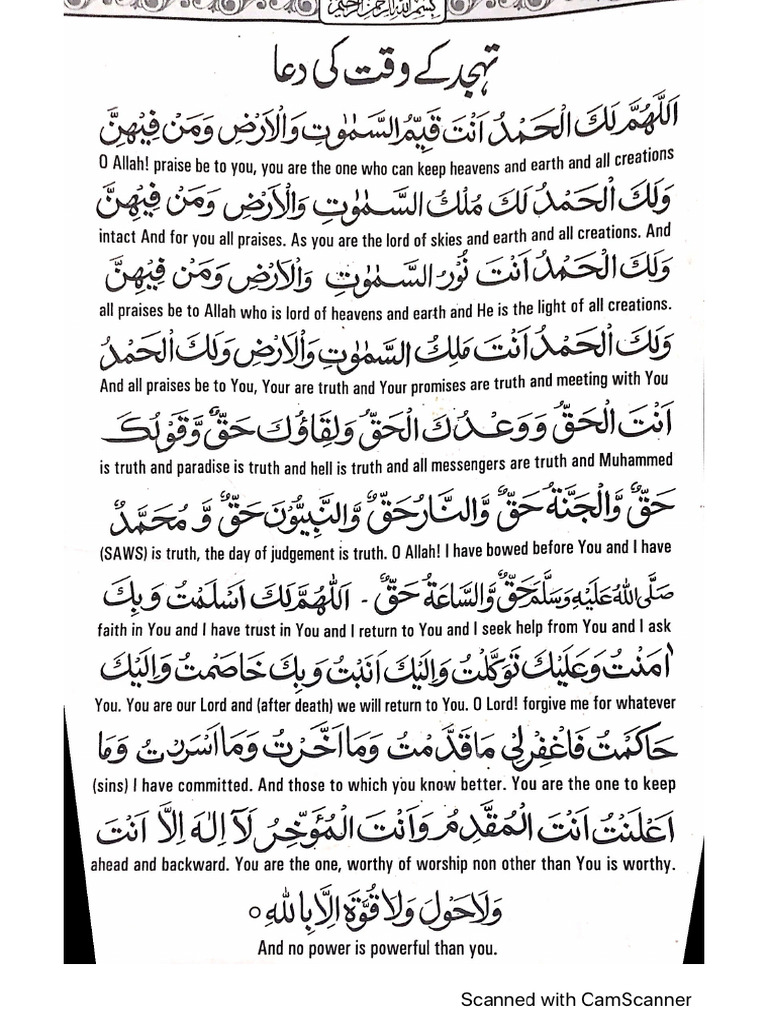 بِسْمِ اللهِ الرَّحْمٰنِ الرَّحِيْمِ
تہجد کے وقت کی دعا
اَللّٰهُمَّ لَكَ الْحَمْدُ اَنْتَ قَيِّمُ السَّمٰوٰتِ وَالْاَرْضِ وَمَنْ فِيْهِنَّ
O Allah! praise be to you, you are the one who can keep heavens and earth and all creations
وَلَكَ الْحَمْدُ لَكَ مُلْكُ السَّمٰوٰتِ وَالْاَرْضِ وَمَنْ فِيْهِنَّ
intact And for you all praises. As you are the lord of skies and earth and all creations. And
وَلَكَ الْحَمْدُ اَنْتَ نُوْرُ السَّمٰوٰتِ وَالْاَرْضِ وَمَنْ فِيْهِنَّ
all praises be to Allah who is lord of heavens and earth and He is the light of all creations.
وَلَكَ الْحَمْدُ اَنْتَ مَلِكُ السَّمٰوٰتِ وَالْاَرْضِ وَلَكَ الْحَمْدُ
And all praises be to You, Your are truth and Your promises are truth and meeting with You
اَنْتَ الْحَقُّ وَوَعْدُكَ الْحَقُّ وَلِقَاؤُكَ حَقٌّ وَّقَوْلُكَ
is truth and paradise is truth and hell is truth and all messengers are truth and Muhammed
حَقٌّ وَّالْجَنَّةُ حَقٌّ وَّالنَّارُ حَقٌّ وَّالنَّبِيُّوْنَ حَقٌّ وَّ مُحَمَّدٌ
(SAWS) is truth, the day of judgement is truth. O Allah! I have bowed before You and I have
صَلَّى اللهُ عَلَيْهِ وَسَلَّمَ حَقٌّ وَّالسَّاعَةُ حَقٌّ - اَللّٰهُمَّ لَكَ اَسْلَمْتُ وَبِكَ
faith in You and I have trust in You and I return to You and I seek help from You and I ask
اٰمَنْتُ وَعَلَيْكَ تَوَكَّلْتُ وَاِلَيْكَ اَنَبْتُ وَبِكَ خَاصَمْتُ وَاِلَيْكَ
You. You are our Lord and (after death) we will return to You. O Lord! forgive me for whatever
حَاكَمْتُ فَاغْفِرْلِيْ مَا قَدَّمْتُ وَمَا اَخَّرْتُ وَمَا اَسْرَرْتُ وَمَا
(sins) I have committed. And those to which you know better. You are the one to keep
اَعْلَنْتُ اَنْتَ الْمُقَدِّمُ وَاَنْتَ الْمُؤَخِّرُ لَآ اِلٰهَ اِلَّا اَنْتَ
ahead and backward. You are the one, worthy of worship non other than You is worthy.
وَلَا حَوْلَ وَلَا قُوَّةَ اِلَّا بِاللهِ ○
And no power is powerful than you.
Scanned with CamScanner